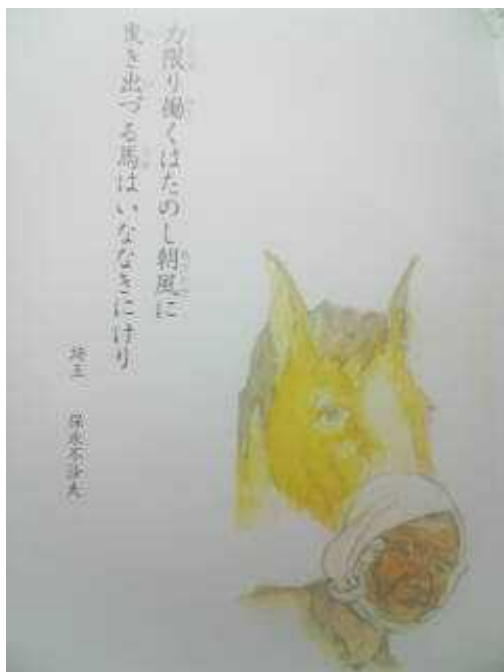 力限り働くはたのし朝風に
曳き出づる馬はいななきにけり
埼玉 保永不汲夫